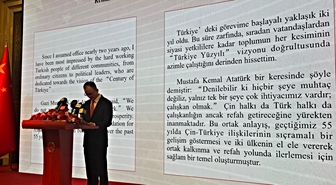 Since I assumed office nearly two years ago, I
have been most impressed by the hard working
Turkish people of different communities, from
ordinary citizens to political leaders, who are
dedicated towards the vision of the "Century of
Türkiye'deki görevime başlayalı yaklaşık iki
yıl oldu. Bu süre zarfında, sıradan vatandaşlardan
siyasi yetkililere kadar toplumun her kesiminden
"Türkiye Yüzyılı" vizyonu doğrultusunda
azimle çalıştığını derinden hissettim.
Mustafa Kemal Atatürk bir keresinde şöyle
demiştir: "Denilebilir ki hiçbir şeye muhtaç
değiliz, yalnız tek bir şeye çok ihtiyacımız vardır;
çalışkan olmak." Çin halkı da Türk halkı da
çalışkanlığın ancak refah getireceğine yürekten
inanmaktadır. Bu ortak anlayış, geçtiğimiz 55
yılda Çin-Türkiye ilişkilerinin sıçramalı bir
gelişim göstermesi ve iki ülkenin el ele vererek
ortak kalkınma ve refah yolunda ilerlemesi için
sağlam bir temel oluşturmuştur.